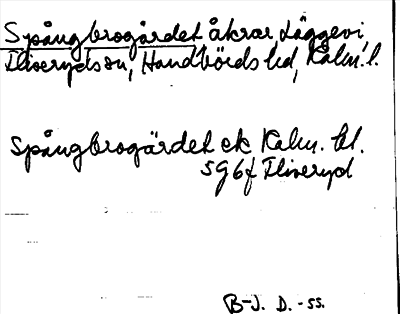 Spångbrogärdet åkrar Läggevi,
Fliserydsn, Handbörds hd, Kalm. l.
Spångbrogärdet ek Kalm. bl.
5G6f Fliseryd
B-J. D. -ss.